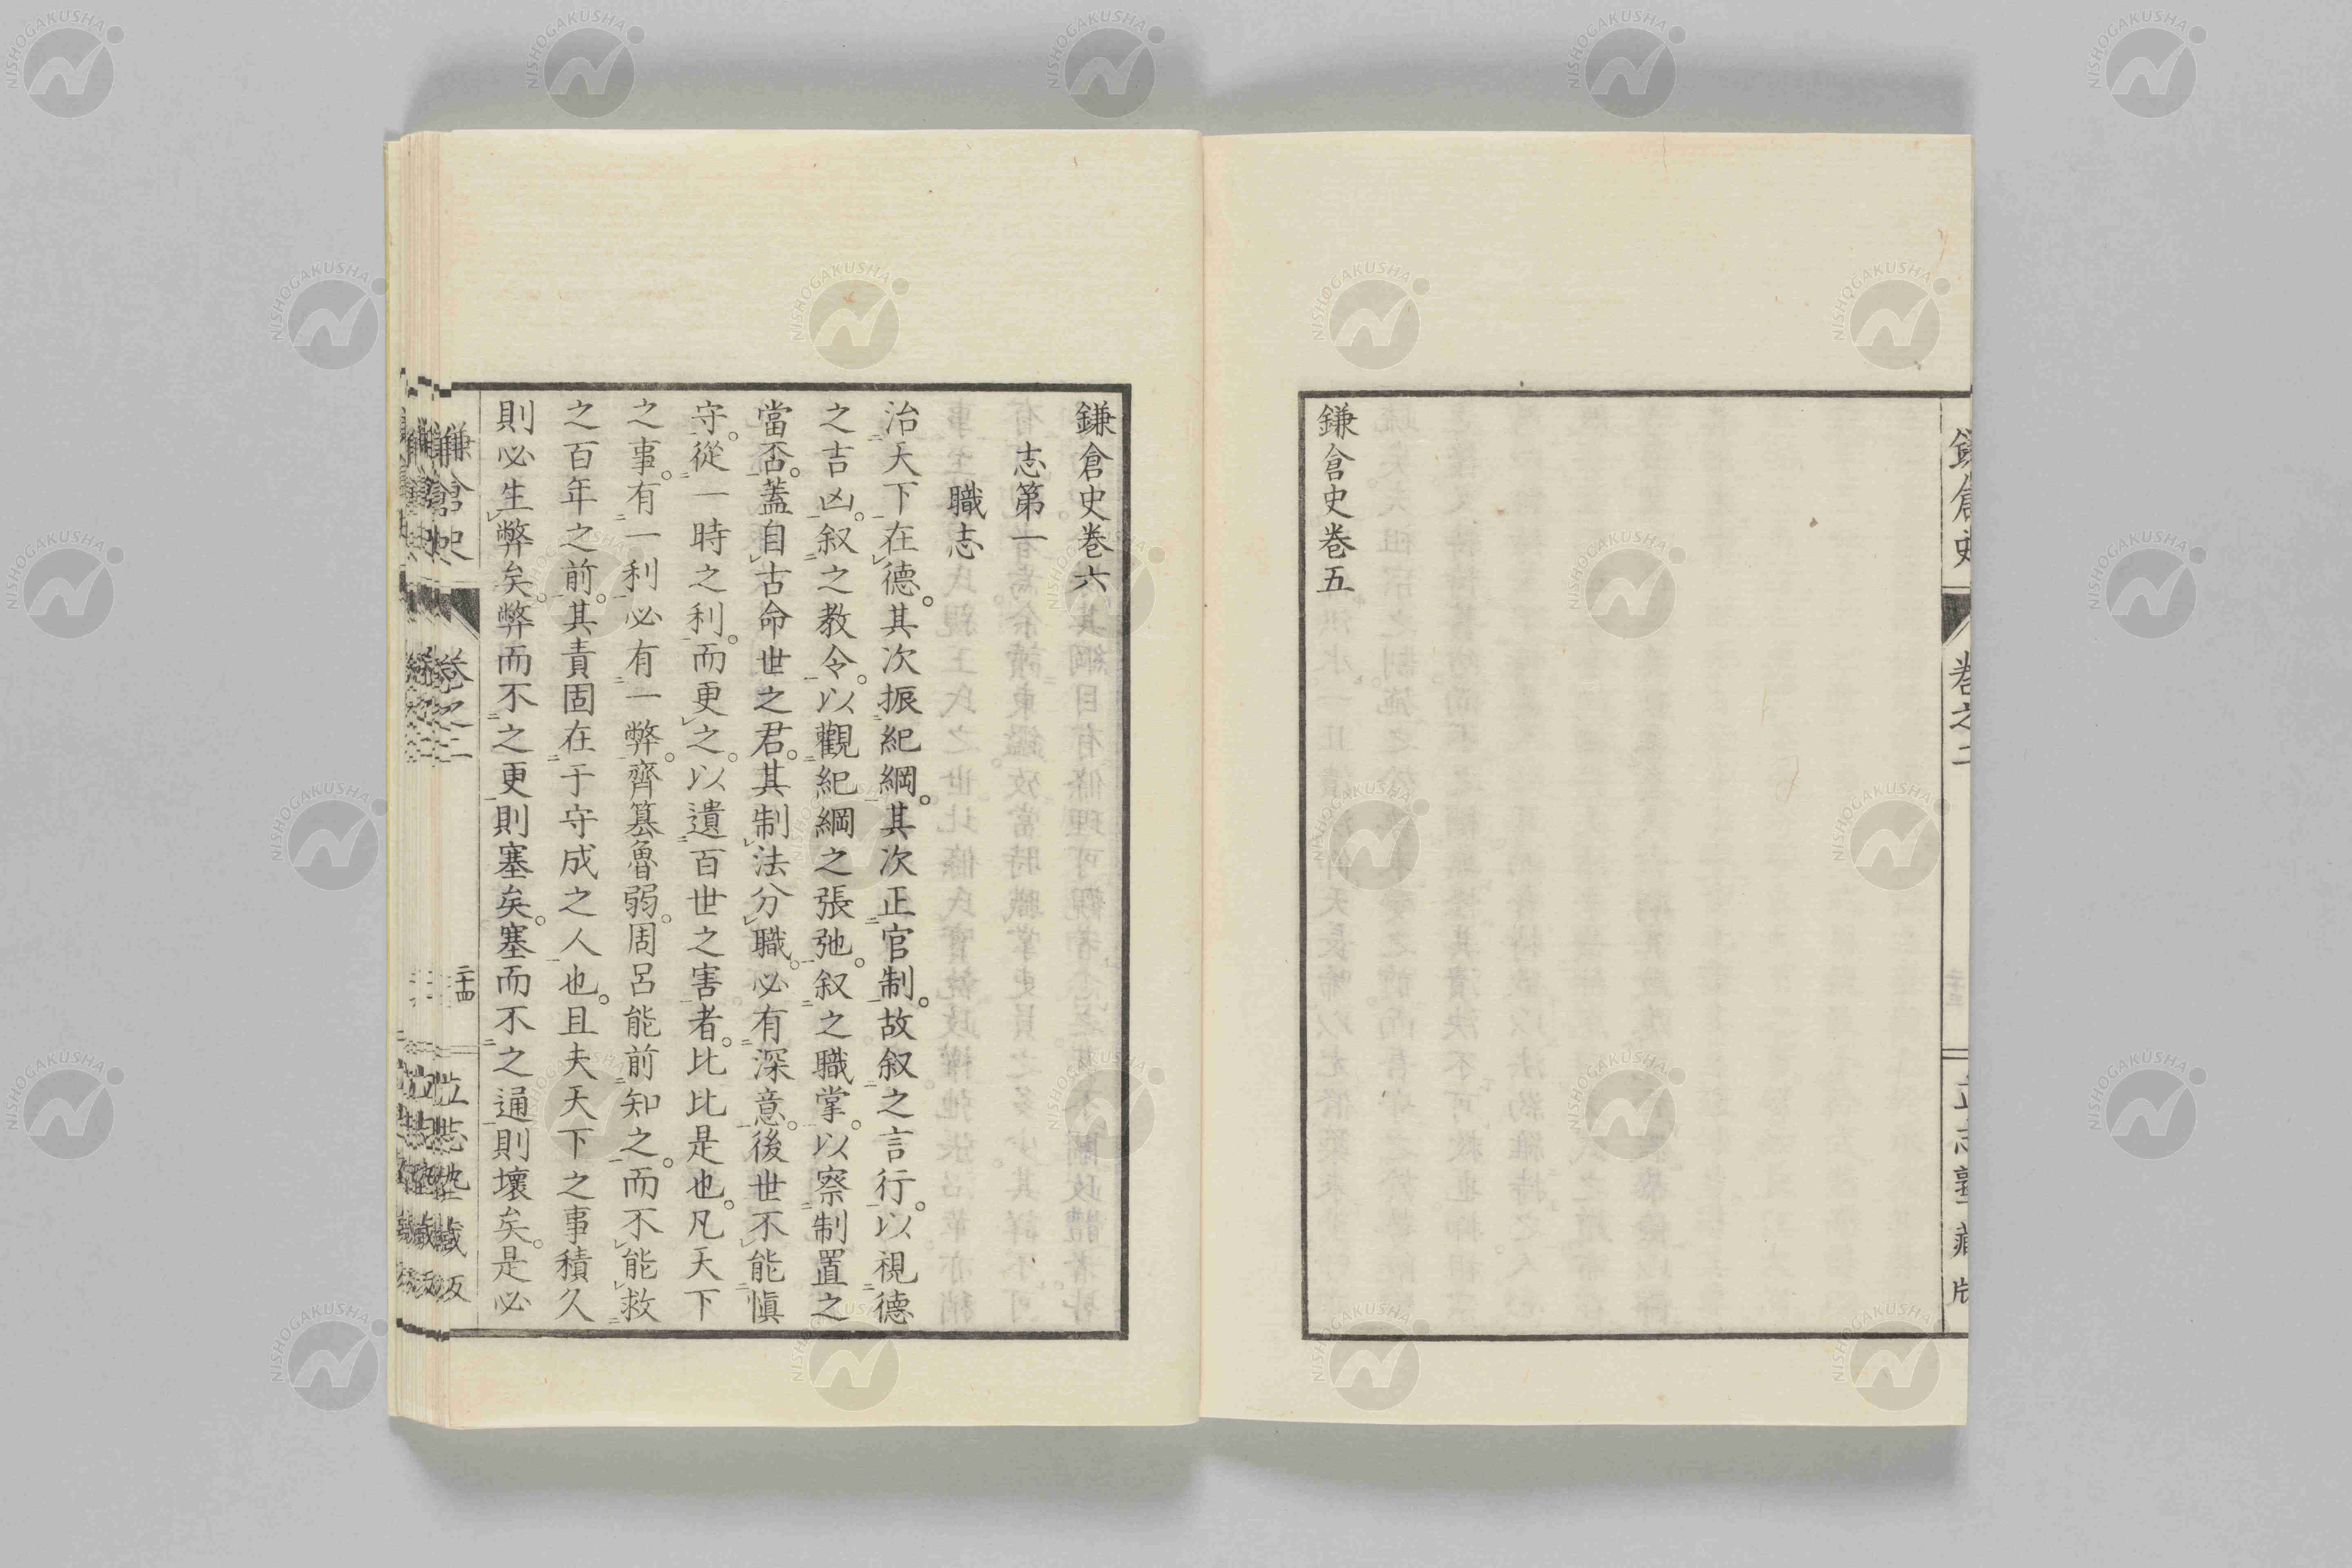 鎌倉史卷五
鎌倉史卷六
志第一
職志
治天下在德。其次振紀綱。其次正官制。故叙之言行。以視德
之吉凶。叙之教令。以觀紀綱之張弛。叙之職掌。以察制置之
當否。蓋自古命世之君。其制法分職。必有深意。後世不能愼
守。從一時之利。而更之。以遺百世之害者。比比是也。凡天下
之事。有一利必有一弊。齊簒魯弱。周呂能前知之。而不能救
之百年之前。其責固在于守成之人也。且夫天下之事積久
則必生弊矣。弊而不之更則塞矣。塞而不之通則壞矣。是必
鎌倉史
卷之二
二十四
NISHOGAKUSHA